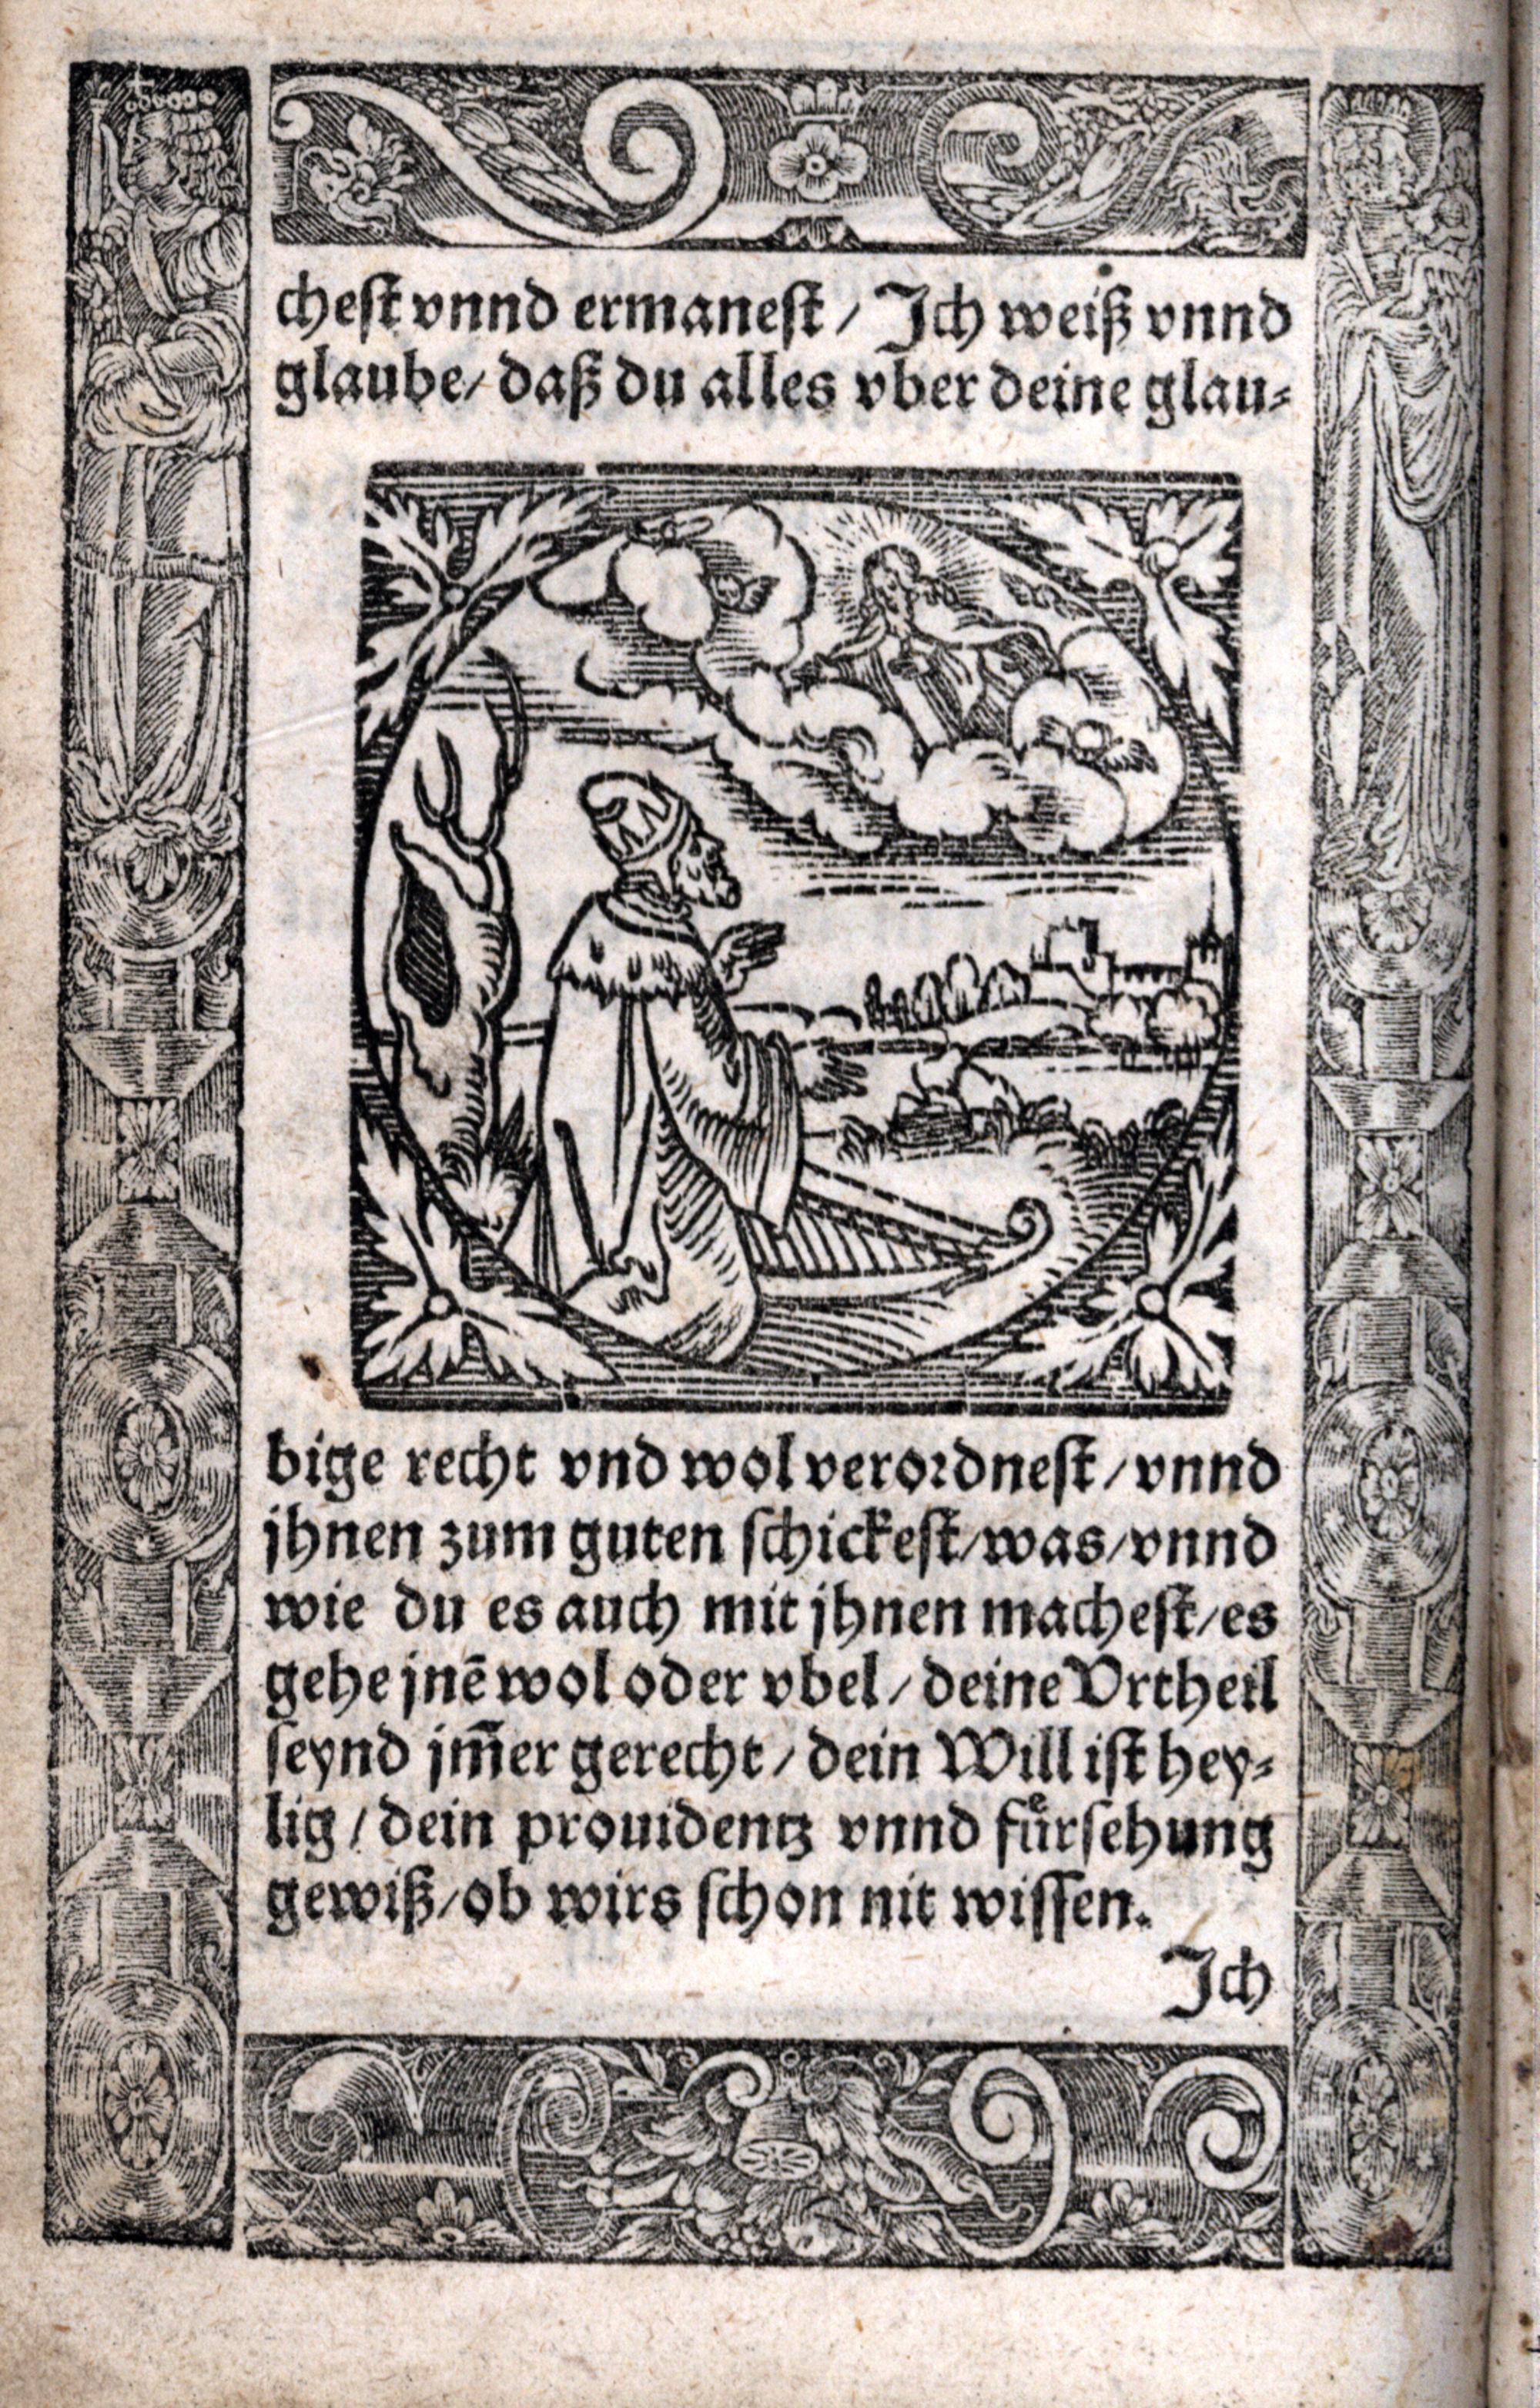 chest vnnd ermanest / Ich weiß vnnd
glaube / daß du alles vber deine glau⸗
bige recht vnd wol verordnest / vnnd
jhnen zum guten schickest / was / vnnd
wie du es auch mit jhnen machest / es
gehe jnē wol oder vbel / deine Vrtheil
seynd jm̅er gerecht / dein Will ist hey⸗
lig / dein prouidentz vnnd fuͤrsehung
gewiß / ob wirs schon nit wissen.
Ich